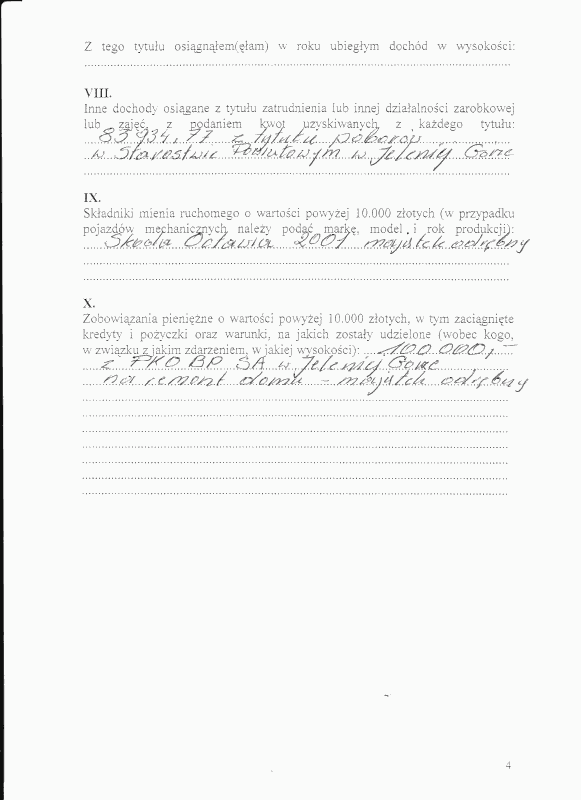 Z tego tytułu osiągnąłem(ęłam) w roku ubiegłym dochód w wysokości:
VIII.
Inne dochody osiągane z tytułu zatrudnienia lub innej działalności zarobkowej
lub zajęć, z podaniem kwot uzyskiwanych z każdego tytułu:
83 934,77 z tytułu poborów
w Starostwie Powiatowym w Jeleniej Górze
IX.
Składniki mienia ruchomego o wartości powyżej 10.000 złotych (w przypadku
pojazdów mechanicznych należy podać markę, model i rok produkcji):
Skoda Octavia 2001 majątek odrębny
X.
Zobowiązania pieniężne o wartości powyżej 10.000 złotych, w tym zaciągnięte
kredyty i pożyczki oraz warunki, na jakich zostały udzielone (wobec kogo,
w związku z jakim zdarzeniem, w jakiej wysokości): 100 000,-
z PKO BP SA w Jeleniej Górze
na remont domu - majątek odrębny
4